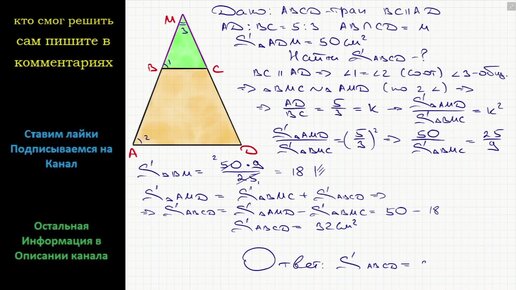 кто смог решить
сам пишите в
комментариях
Ставим лайки
Подписываемся на
Канал
Остальная
Информация в
Описании канала
M
3
B 1 C
2
A D
Дано: ABCD - трап BC||AD
AD : BC = 5 : 3 AB∩CD = M
S△ADM = 50 см²
Найти SABCD - ?
BC || AD ⇒ ∠1 = ∠2 (соот) ∠3 - общ.
⇒ △BMC ~ △AMD (по 2 ∠) ⇒
⇒ AD/BC = 5/3 = k ⇒ S△AMD/S△BMC = k²
S△AMD/S△BMC = (5/3)² ⇒ 50/S△BMC = 25/9
S△BMC = 50·9/25 = 18
S△AMD = S△BMC + SABCD ⇒
⇒ SABCD = S△AMD - S△BMC = 50 - 18
SABCD = 32 см²
Ответ: SABCD = ?